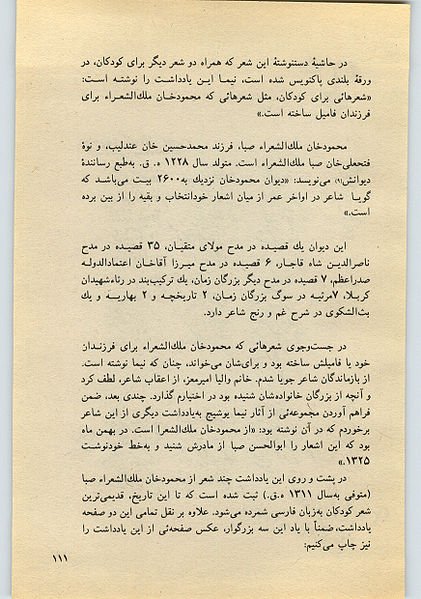 در حاشیهٔ دستنوشتهٔ این شعر که همراه دو شعر دیگر برای کودکان، در
ورقهٔ بلندی پاکنویس شده است، نیما این یادداشت را نوشته است:
«شعرهائی برای کودکان، مثل شعرهائی که محمودخان ملك‌الشعراء برای
فرزندان فامیل ساخته است.»
محمودخان ملك‌الشعراء صبا، فرزند محمدحسین خان عندلیب، و نوهٔ
فتحعلی‌خان صبا ملك‌الشعراء است. متولد سال ۱۲۲۸ ه‍. ق. به‌طبع رسانندهٔ
دیوانش(۹) می‌نویسد: «دیوان محمودخان نزدیك به۲۶۰۰ بیت می‌باشد که
گویا شاعر در اواخر عمر از میان اشعار خودانتخاب و بقیه را از بین برده
است.»
این دیوان یك قصیده در مدح مولای متقیان، ۳۵ قصیده در مدح
ناصرالدین شاه قاجار، ۶ قصیده در مدح میرزا آقاخان اعتمادالدوله
صدراعظم، ۷ قصیده در مدح دیگر بزرگان زمان، یك ترکیب‌بند در رثاءشهیدان
کربلا، ۷مرثیه در سوگ بزرگان زمان، ۲ تاریخچه و ۲ بهاریه و یك
بث‌الشکوی در شرح غم و رنج شاعر دارد.
در جست‌وجوی شعرهائی که محمودخان ملك‌الشعراء برای فرزندان
خود یا فامیلش ساخته بود و برای‌شان می‌خواند، چنان که نیما نوشته است.
از بازماندگان شاعر جویا شدم. خانم والیا امیرمعز، از اعقاب شاعر، لطف کرد
و آنچه از بزرگان خانواده‌شان شنیده بود در اختیارم گذارد. چندی بعد، ضمن
فراهم آوردن مجموعه‌ئی از آثار نیما یوشیج به‌یادداشت دیگری از این شاعر
برخوردم که در آن نوشته بود: «از محمودخان ملك‌الشعرا است. در بهمن ماه
بود که این اشعار را ابوالحسن صبا از مادرش شنید و به‌خط خودنوشت
۱۳۲۵.»
در پشت و روی این یادداشت چند شعر از محمودخان ملك‌الشعراء صبا
(متوفی به‌سال ۱۳۱۱ ه‍.ق.) ثبت شده است که تا این تاریخ، قدیمی‌ترین
شعر کودکان به‌زبان فارسی شمرده می‌شود. علاوه بر نقل تمامی این دو صفحه
یادداشت، ضمناً با یاد این سه بزرگوار، عکس صفحه‌ئی از این یادداشت را
نیز چاپ می‌کنیم:
۱۱۱